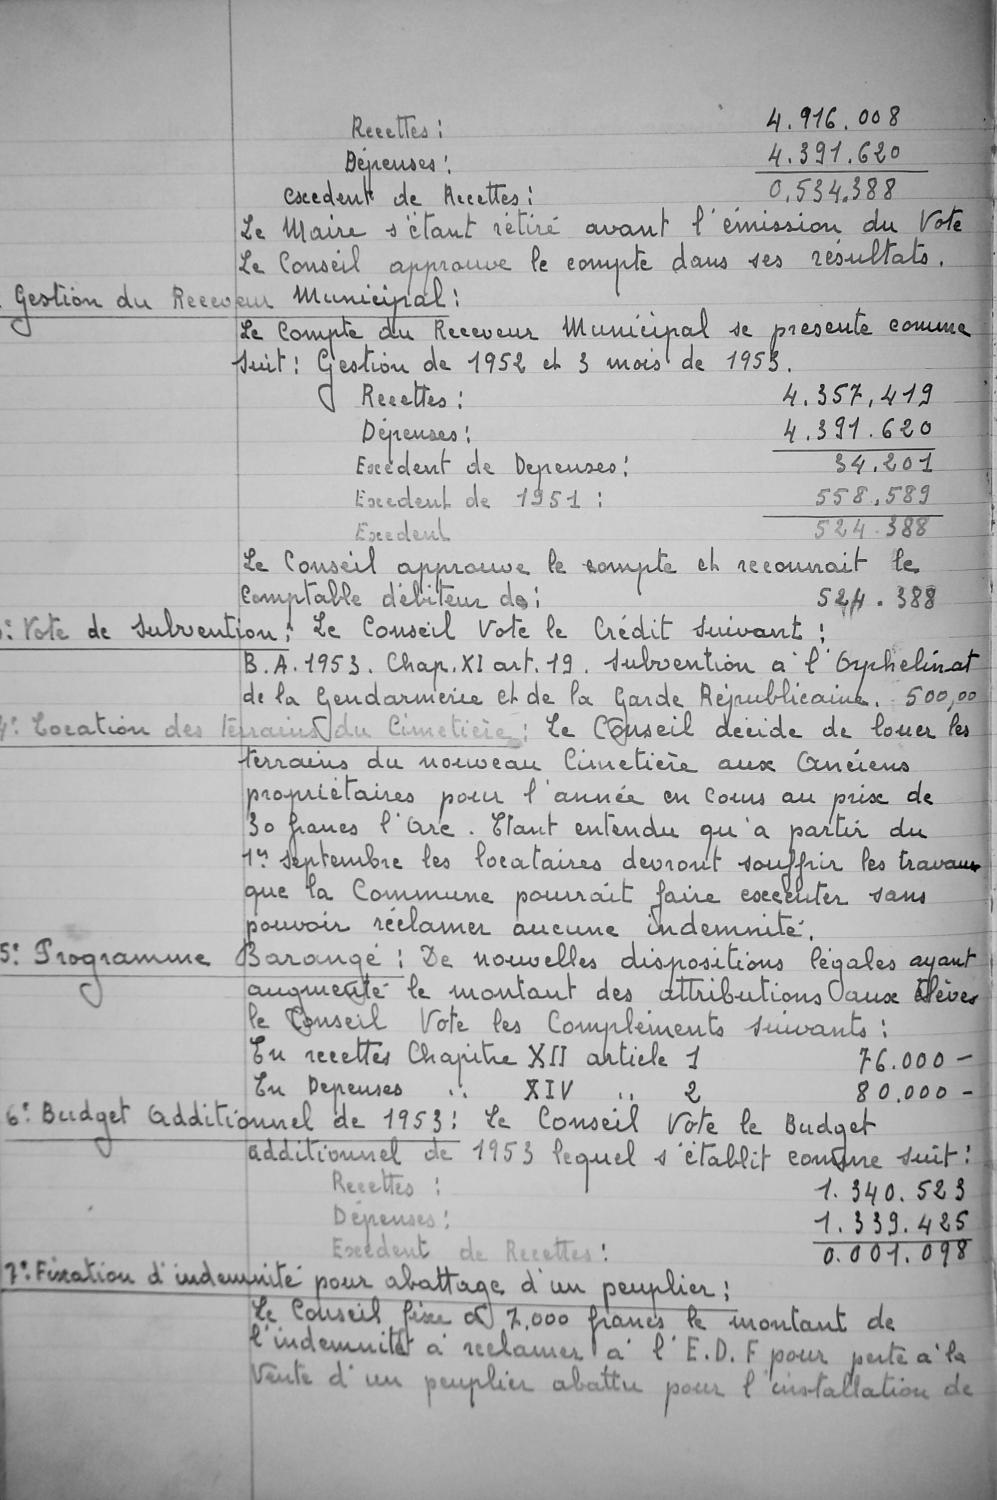 Recettes : 4.916.008
Dépenses : 4.391.620
excedent de Recettes : 0.534.388
Le Maire s'étant rétiré avant l'émission du Vote
Le Conseil approuve le compte dans ses résultats.
Gestion du Receveur Municipal :
Le Compte du Receveur Municipal se presente comme
suit : Gestion de 1952 et 3 mois de 1953.
Recettes : 4.357,419
Dépenses : 4.391.620
Excedent de Depenses : 34.201
Excedent de 1951 : 558,589
Excedent 524.388
Le Conseil approuve le compte et reconnait le
Comptable débiteur de : 524.388
: Vote de Subvention : Le Conseil Vote le Crédit suivant :
B.A. 1953. Chap. XI art. 19. Subvention à l'Orphelinat
de la Gendarmerie et de la Garde Républicaine. 500,00
4°: Location des terrains du Cimetière : Le Conseil décide de louer les
terrains du nouveau Cimetière aux Anciens
propriétaires pour l'année en cours au prix de
30 francs l'Are. Etant entendu qu'a partir du
1er Septembre les locataires devront souffrir les travaux
que la Commune pourrait faire executer sans
pouvoir réclamer aucune indemnité.
5°: Programme Barangé : De nouvelles dispositions légales ayant
augmenté le montant des attributions aux Elèves
le Conseil Vote les Compléments suivants :
En recettes Chapitre XII article 1 76.000 -
En Depenses .. XIV .. 2 80.000 -
6°: Budget Additionnel de 1953 : Le Conseil Vote le Budget
additionnel de 1953 lequel s'établit comme suit :
Recettes : 1.340.523
Dépenses : 1.339.425
Excédent de Recettes : 0.001.098
7°: Fixation d'indemnité pour abattage d'un peuplier :
Le Conseil fixe à 7,000 francs le montant de
l'indemnité à reclamer à l'E.D.F pour perte à la
Vente d'un peuplier abattu pour l'installation de